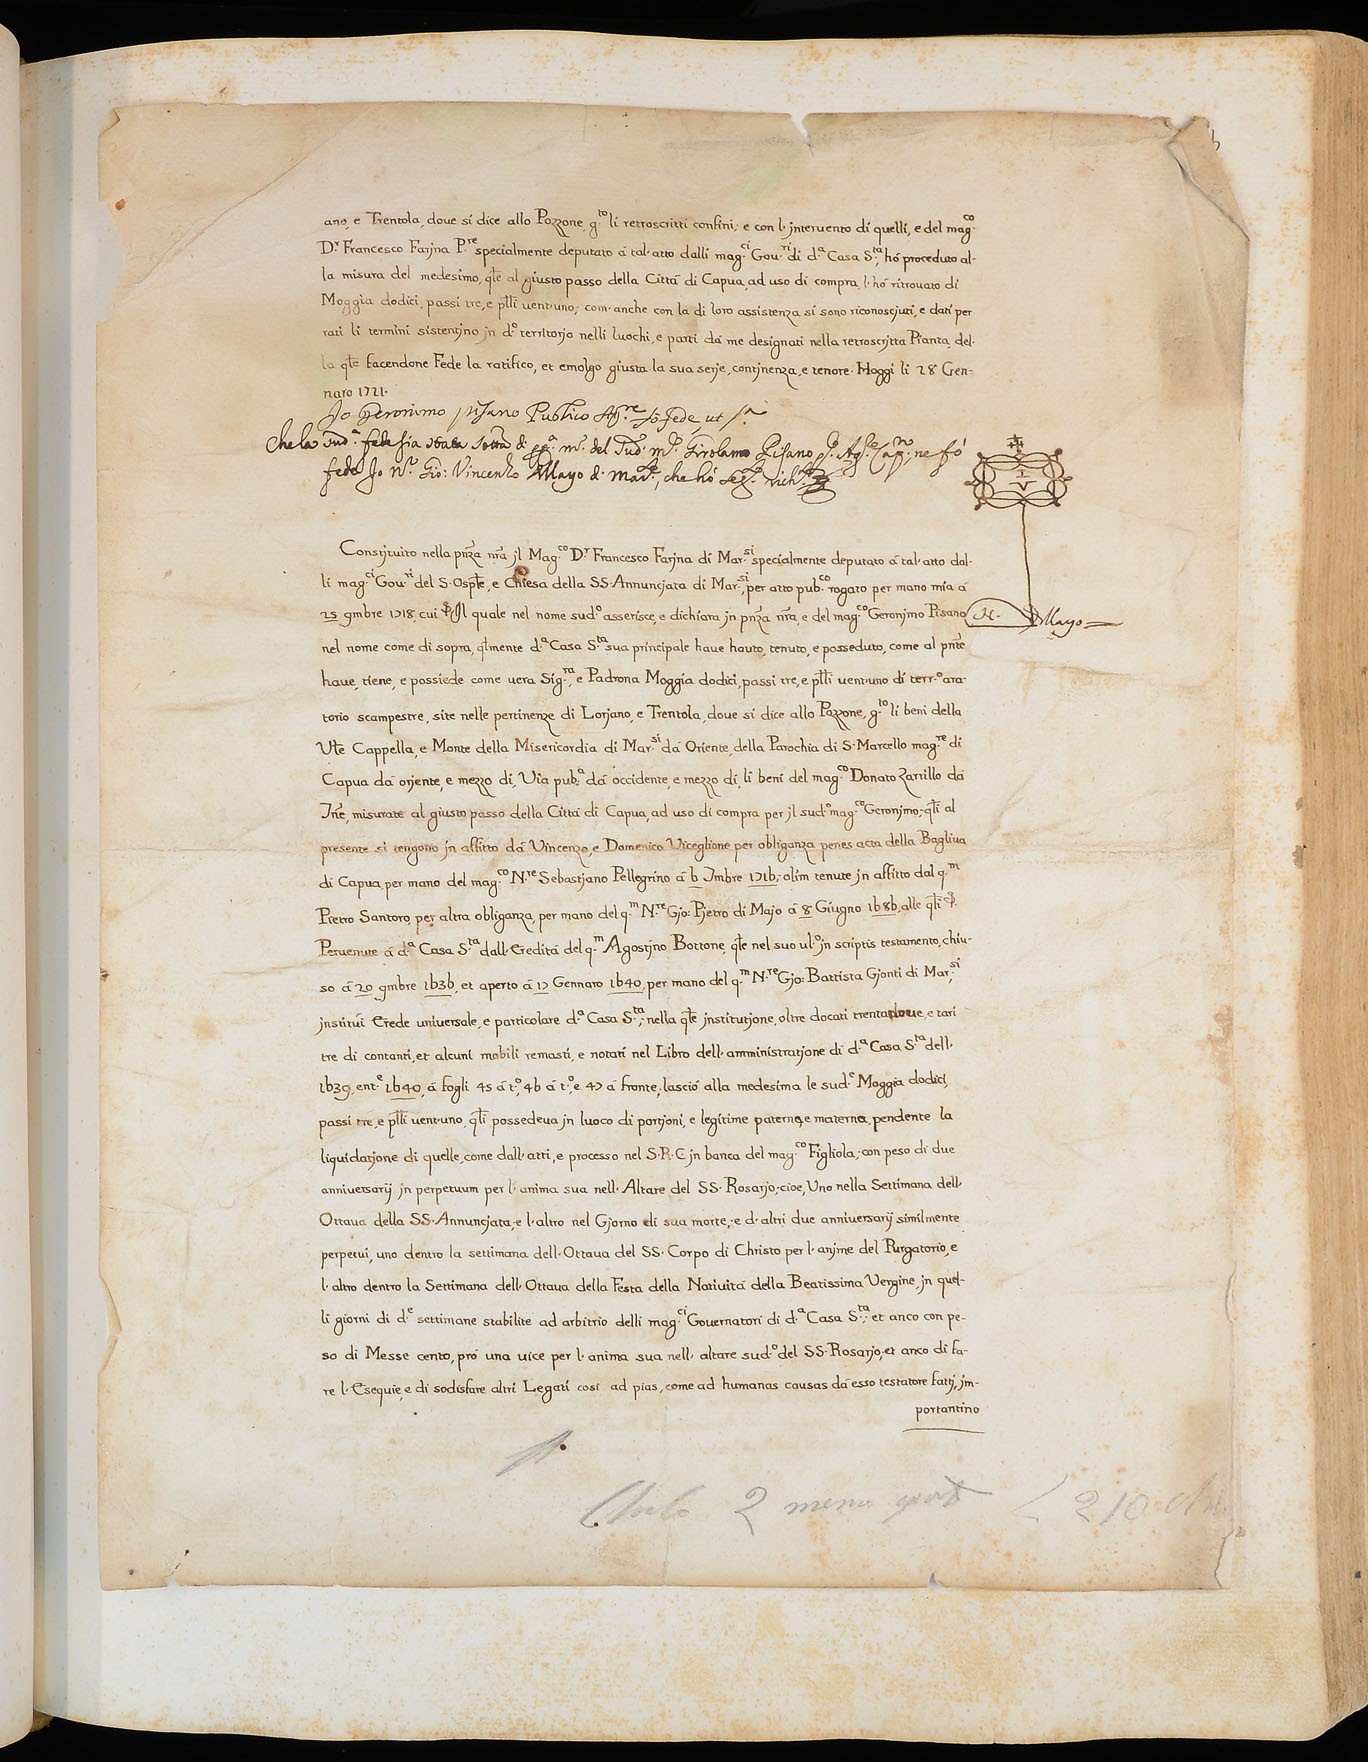 ano, e Trentola, doue si dice allo Pozzone, g.to li retroscritti confini, e con l' interuento di quelli, e del mag.co
D.r Francesco Farjna P.re specialmente deputato á tal' atto dalli mag.ci Gou.ri di d.a Casa S.ta, hó proceduto al-
la misura del medesimo, q̃le al giusto passo della Cittá di Capua, ad uso di compra, l' hó ritrouato di
Moggia dodici, passi tre, e p̃lli uent'uno; com' anche con la di loro assistenza si sono riconosciuti, e dati per
rati li termini sistentjno jn d.o territorjo nelli luochi, e parti dá me designati nella retroscritta Pianta, del-
la q̃le facendone Fede la ratifico, et emolgo giusta la sua serje, contjnenza, e tenore. Hoggi li 28 Gen-
naro 1721.
Jo Geronimo Pisano Publico Ag.re fó fede ut s.a
che la sud.a fede sia stata sotta di pp.a m.o del sud. m.o Girolamo Pisano p. Ag.re Cap.no, ne fó
fede Jo N.r Gio: Vincenzo Mayo di Mad.e, che hó seg. rich.
Constjtuito nella pñza ñra jl Mag.co D.r Francesco Farjna di Mar.si specialmente deputato á tal' atto dal-
li mag.ci Gou.ri del S. Osp̃le, e Chiesa della SS. Annuncjata di Mar.si, per atto pub.co rogato per mano mia á
25 9mbre 1718, cui Jl quale nel nome sud.o asserisce, e dichiara jn pñza ñra, e del mag.co Geronjmo Pisano
N. Mayo
nel nome come di sopra, q̃lmente d.a Casa S.ta sua principale haue hauto, tenuto, e posseduto, come al pñte
haue, tiene, e possiede come uera Sig.ra, e Padrona Moggia dodici, passi tre, e p̃lli uent'uno di terr.o ara-
torio scampestre, site nelle pertinenze di Lorjano, e Trentola, doue si dice allo Pozzone, g.to li beni della
Ut̃e Cappella, e Monte della Misericordia di Mar.si dá Oriente, della Parochia di S. Marcello mag.re di
Capua dá orjente, e mezzo di, Via pub.a dá occidente, e mezzo di, li beni del mag.co Donato Zarrillo dá
Tñe, misurate al giusto passo della Cittá di Capua, ad uso di compra per jl sud.o mag.co Geronjmo; q̃li al
presente si tengono jn affitto dá Vincenzo, e Domenico Viceglione per obliganza penes acta della Bagliua
di Capua, per mano del mag.co N.re Sebastjano Pellegrino á 6 Jmbre 1716; olim tenute jn affitto dal q.m
Pietro Santoro, per altra obliganza, per mano del q.m N.re Gjo: Pjetro di Majo á 8 Giugno 1686, alle q̃li
Peruenute á d.a Casa S.ta dall' Ereditá del q.m Agostjno Bottone, q̃le nel suo ul.o jn scriptis testamento, chiu-
so á 20 9mbre 1636, et aperto á 17 Gennaro 1640, per mano del q.m N.re Gjo: Battista Gjonti di Mar.si,
jnstituì Erede uniuersale, e particolare d.a Casa S.ta; nella q̃le jnstitutjone, oltre docati trentanoue, e tarì
tre di contanti, et alcuni mobili remasti, e notati nel Libro dell' amministratjone di d.a Casa S.ta dell'
1639, ent.e 1640, á fogli 45 á t.o, 46 á t.o, e 47 á fronte, lasció alla medesima le sud.e Moggia dodici,
passi tre, e p̃lli uent'uno, q̃li possedeua jn luoco di portjoni, e legitime paterna, e materna, pendente la
liquidatjone di quelle, come dall' atti, e processo nel S. R. C jn banca del mag.co Figliola; con peso di due
anniuersarij jn perpetuum per l' anima sua nell' Altare del SS. Rosarjo; cioe, Uno nella Settimana dell'
Ottaua della SS. Annuncjata; e l' altro nel Gjorno di sua morte; e d' altri due anniuersarij similmente
perpetui, uno dentro la settimana dell' Ottaua del SS. Corpo di Christo per l' anjme del Purgatorio, e
l' altro dentro la Settimana dell' Ottaua della Festa della Natiuitá della Beatissima Vergine, jn quel-
li giorni di d.e settimane stabilite ad arbitrio delli mag.ci Gouernatori di d.a Casa S.ta; et anco con pe-
so di Messe cento, pró una uice per l' anima sua nell' altare sud.o del SS. Rosarjo, et anco di fa-
re l' Esequie, e di sodisfare altri Legati così ad pias, come ad humanas causas dá esso testatore fattj, jm-
portantino
2 meno
210